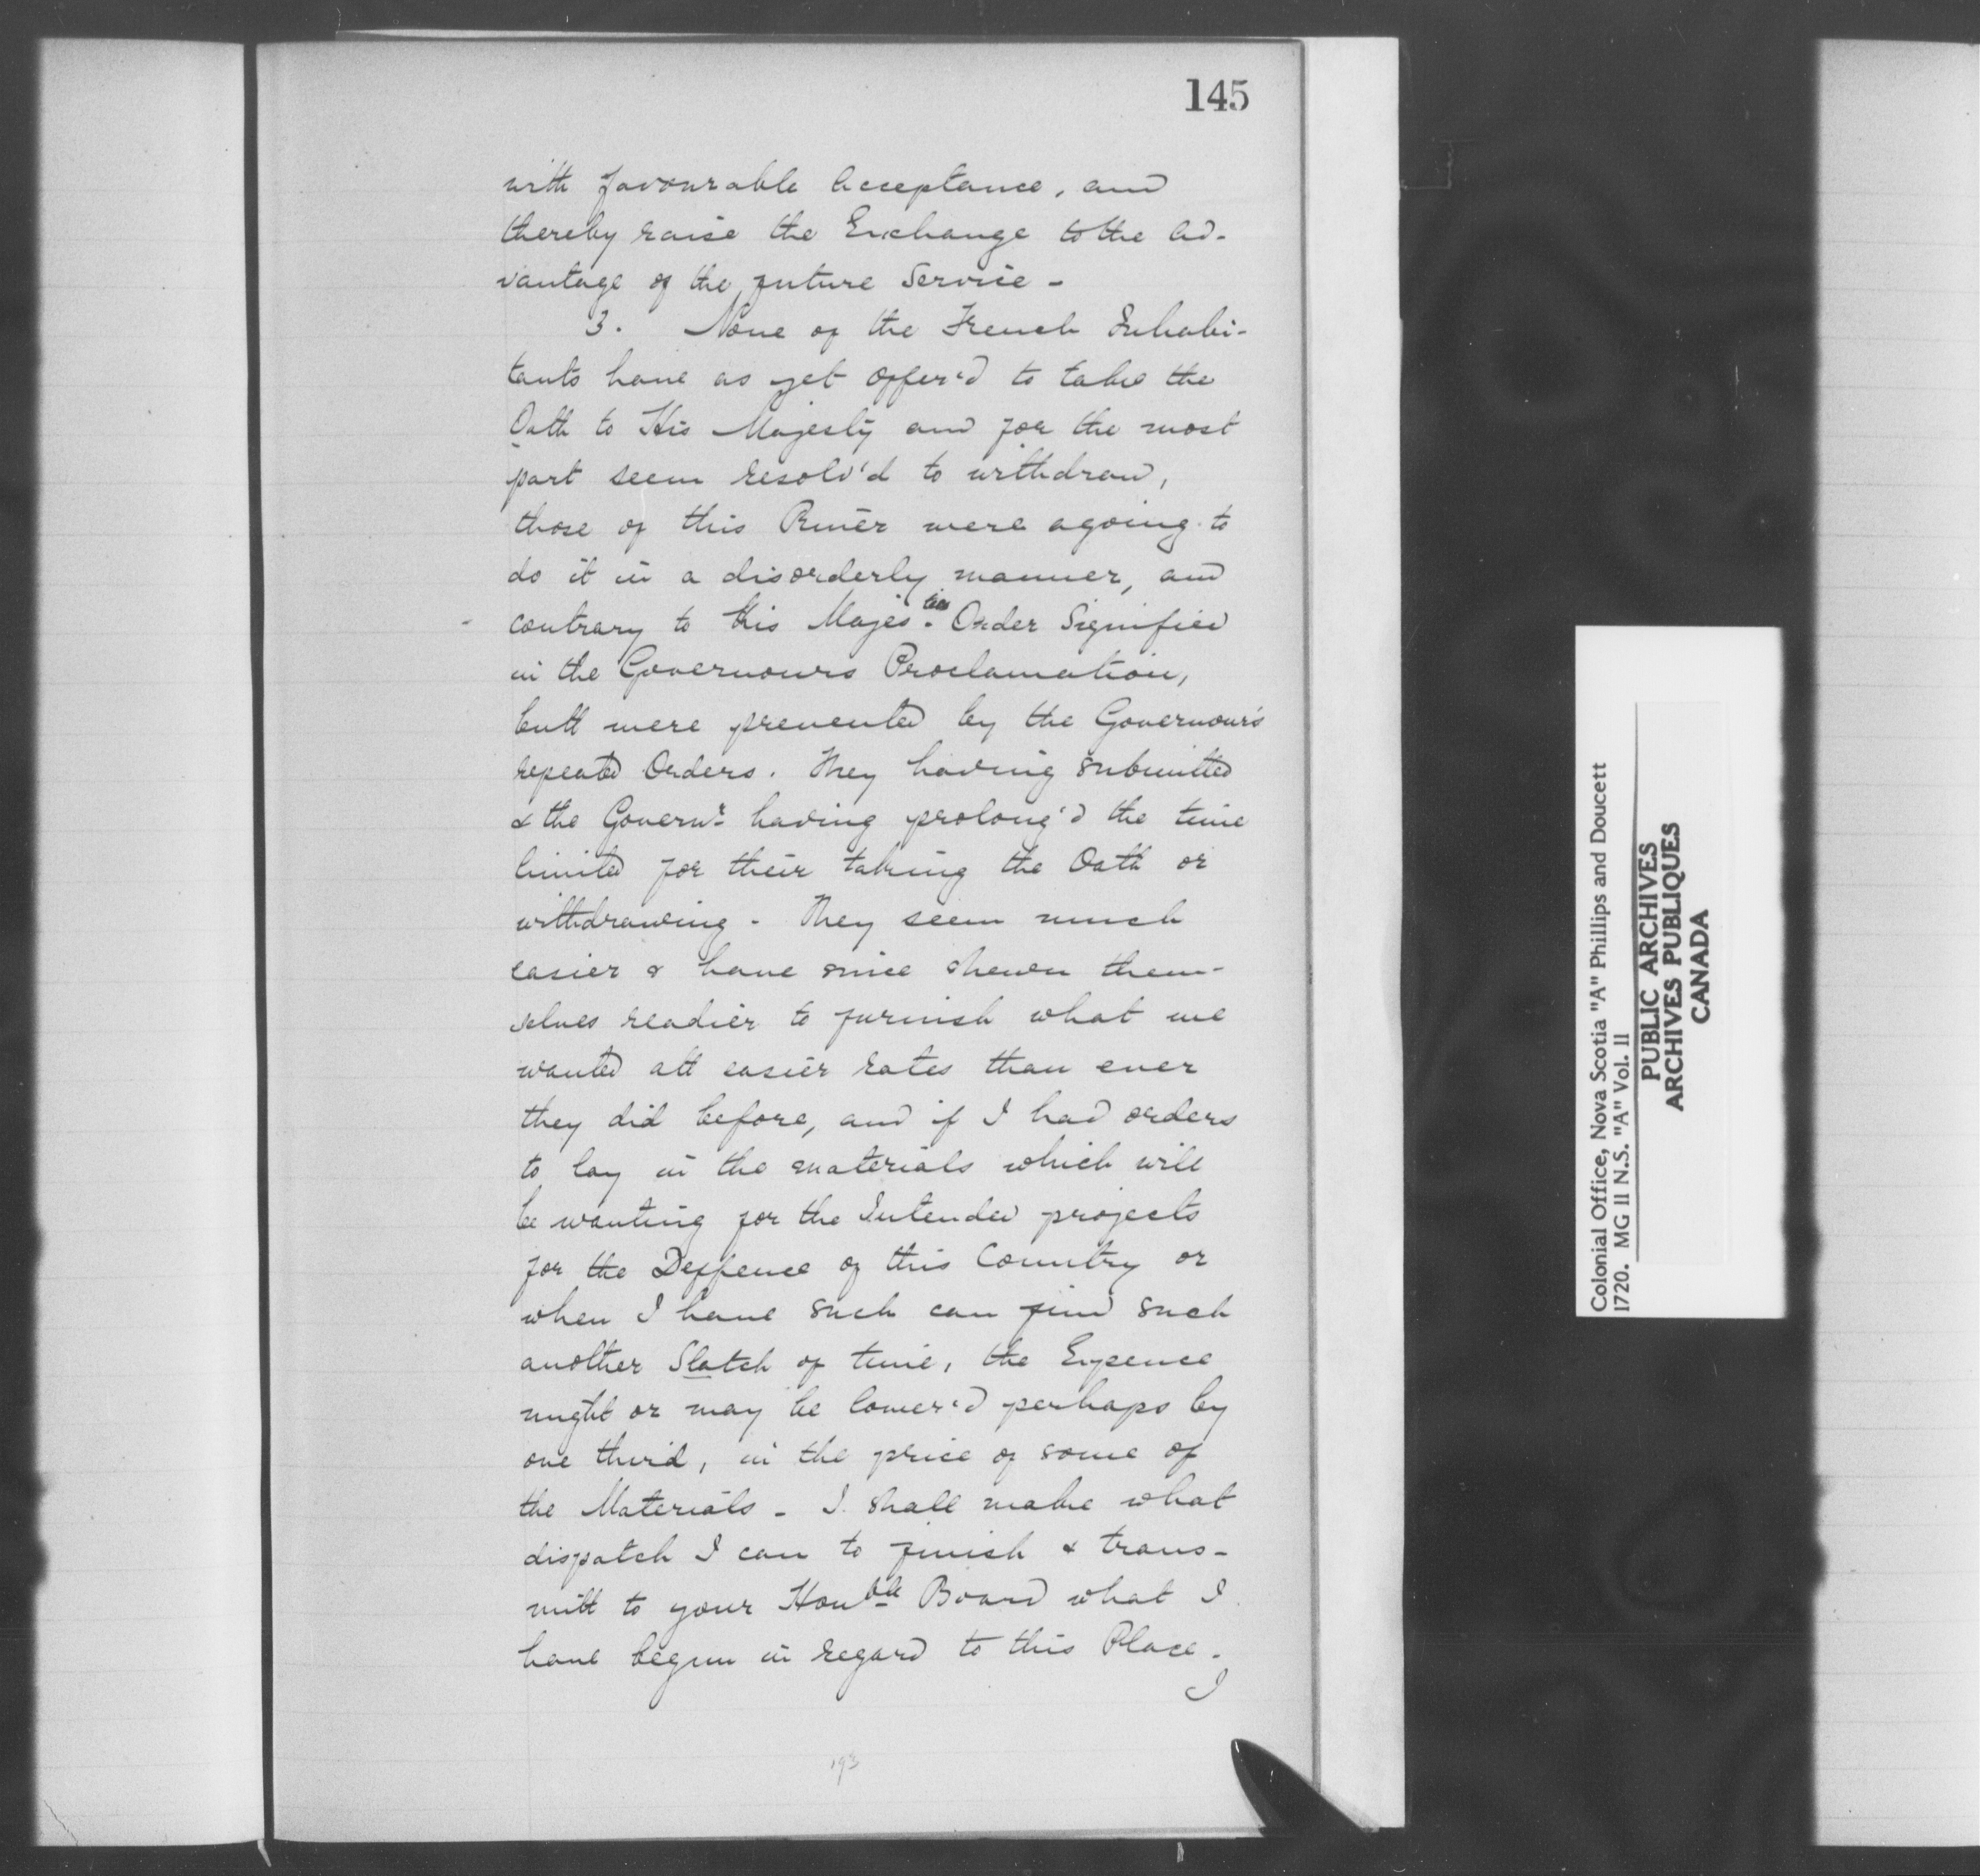 145
with favourable Acceptance, and
thereby raise the Exchange to the Ad-
vantage of the future Service -
3. None of the French Inhabi-
tants have as yet offer'd to take the
Oath to His Majesty and for the most
part seem resolv'd to withdraw,
those of this River were agoing to
do it in a disorderly manner, and
contrary to his Majes.ties Order Signified
in the Governours Proclamation,
butt were prevented by the Governour's
repeated Orders. They having submitted
& the Governr having prolong'd the time
limited for their taking the Oath or
withdrawing - They seem much
easier & have since shewn them-
selves readier to furnish what we
wanted att easier rates than ever
they did before, and if I had orders
to lay in the materials which will
be wanting for the Intended projects
for the Deffence of this Country or
when I have such can find such
another Slatch of time, the Expence
might or may be lower'd perhaps by
one third, in the price of some of
the Materials - I shall make what
dispatch I can to finish & trans-
mitt to your Honble Board what I
have begun in regard to this Place.
I
193
Colonial Office, Nova Scotia "A" Phillips and Doucett
1720. MG 11 N.S. "A" Vol. 11
PUBLIC ARCHIVES
ARCHIVES PUBLIQUES
CANADA